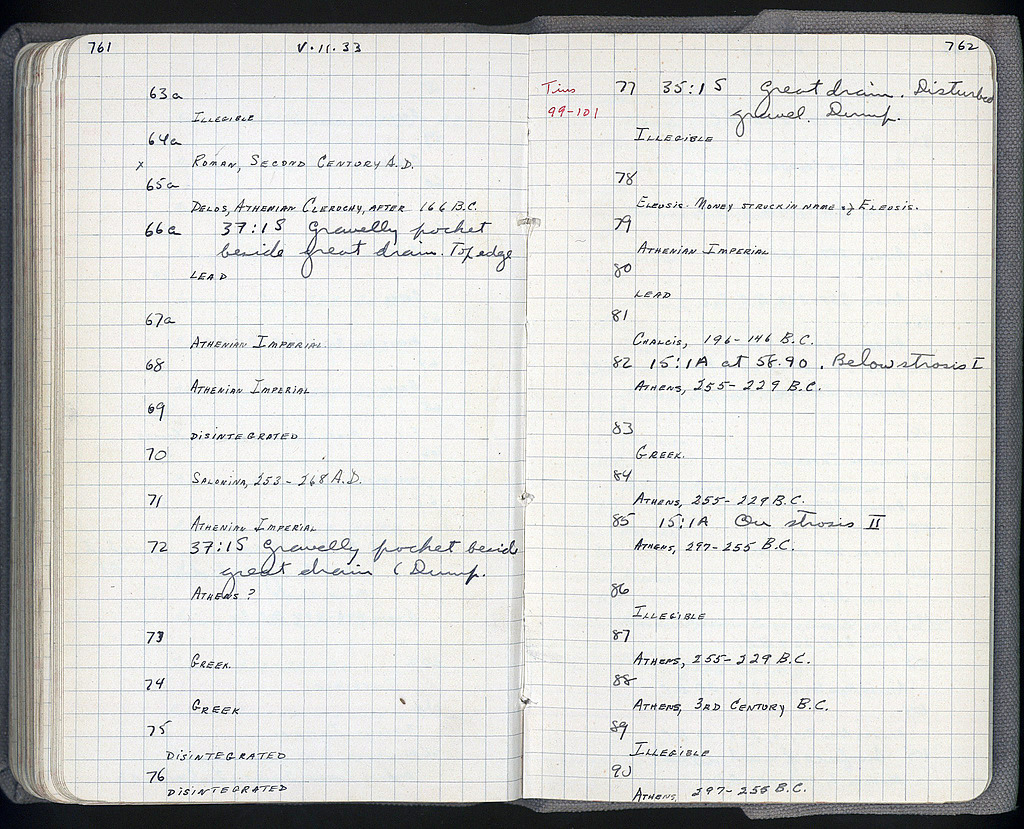 761
V.11.33
63a
ILLEGIBLE
64a
x ROMAN, SECOND CENTURY A.D.
65a
DELOS, ATHENIAN CLERUCHY, AFTER 166 B.C.
66a 37:1S Gravelly pocket
beside great drain. Top edge
LEAD
67a
ATHENIAN IMPERIAL
68
ATHENIAN IMPERIAL
69
DISINTEGRATED
70
SALONINA, 253-268 A.D.
71
ATHENIAN IMPERIAL
72 37:1S Gravelly pocket beside
great drain (Dump.
ATHENS?
73
GREEK
74
GREEK
75
DISINTEGRATED
76
DISINTEGRATED
762
99-101
77 35:1S great drain. Disturbed
gravel. Dump.
ILLEGIBLE
78
ELEUSIS. MONEY STRUCK IN NAME of ELEUSIS.
79
ATHENIAN IMPERIAL
80
LEAD
81
CHALCIS, 196-146 B.C.
82 15:1A at 58.90. Below strosis I
ATHENS, 255-229 B.C.
83
GREEK.
84
ATHENS, 255-229 B.C.
85 15:1A On strosis II
ATHENS, 297-255 B.C.
86
ILLEGIBLE
87
ATHENS, 255-229 B.C.
88
ATHENS, 3RD CENTURY B.C.
89
ILLEGIBLE
90
ATHENS, 297-255 B.C.